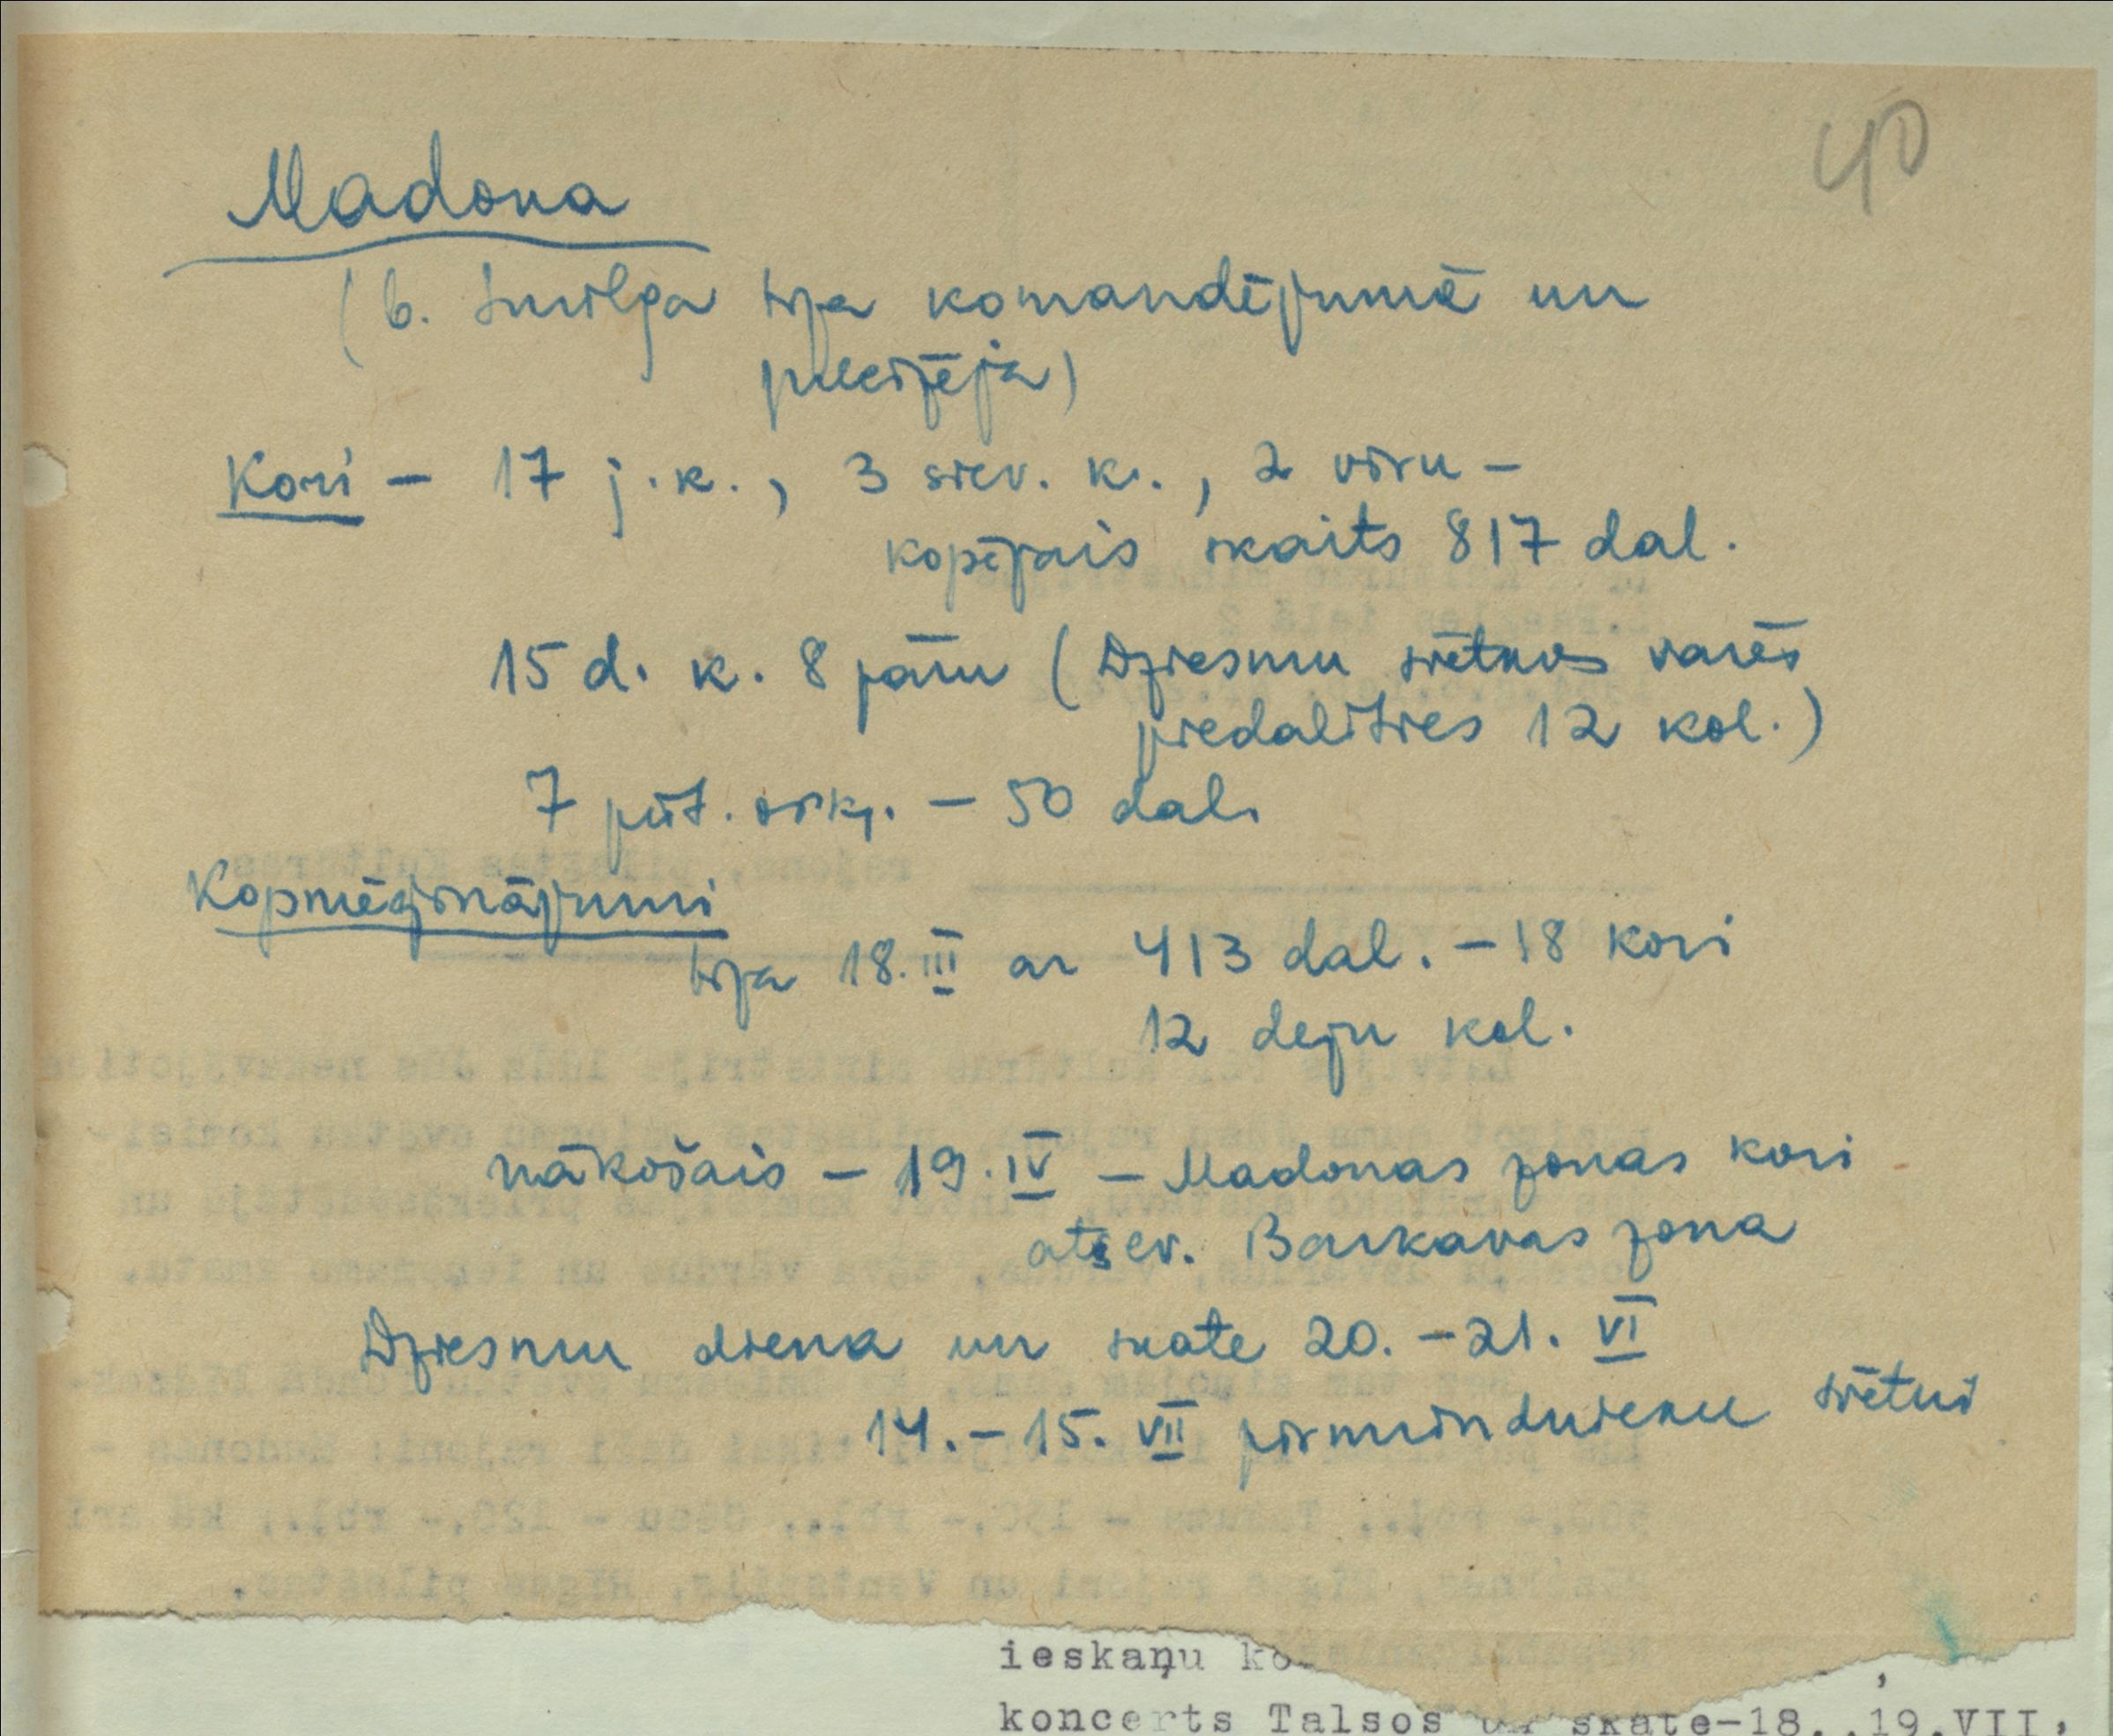 40
Madona
(b. Smilga bija komandējumā un
precizēja)
Kori - 17 j.k., 3 siev. k., 2 vīru -
kopējais skaits 817 dal.
15 d. k. 8 pāru (Dziesmu svētkos varēs
piedalīties 12 kol.)
7 pūt. ork. - 50 dal.
Kopmēģinājumi
bija 18. III ar 413 dal. - 18 kori
12 deju kol.
nākošais - 19. IV - Madonas zonas kori
atsev. Barkavas zona
Dziesmu diena un skate 20. - 21. VI
14. - 15. VII pirmrindnieku svētki
ieskaņu
koncerts Talsos un skate-18.,19.VII,